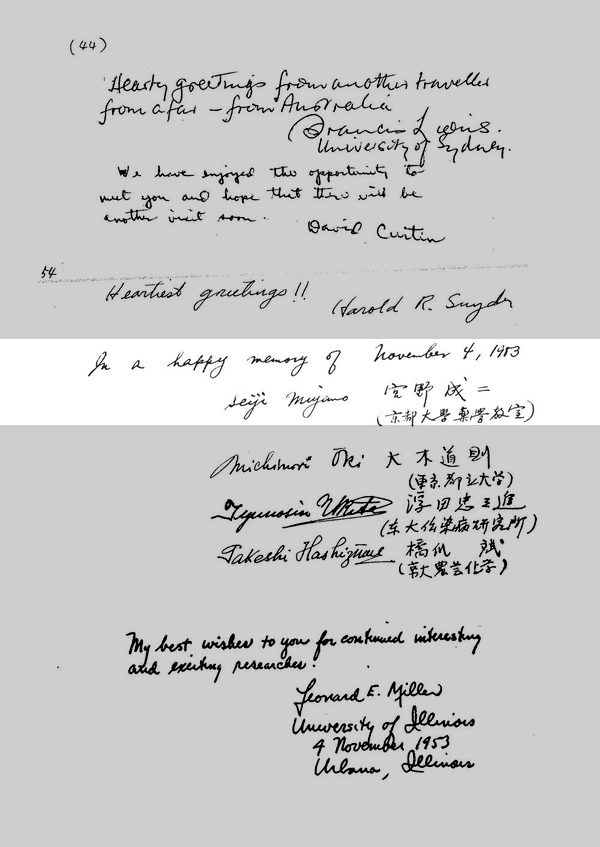 (44)
Hearty greetings from another traveller
from afar – from Australia
Francis Lions.
University of Sydney.
We have enjoyed the opportunity to
meet you and hope that there will be
another visit soon.
David Curtin
54
Heartiest greetings!!
Harold R. Snyder
In a happy memory of November 4, 1953
Seiji Miyano 宮野成二
(京都大學薬学教室)
Michinori Ōki 大木道則
(東京都立大学)
(东大伝染病研究所)
Takeshi Hashizume 橋爪 斌
(京大農芸化学)
My best wishes to you for continued interesting
and exciting researches.
Leonard E. Miller
University of Illinois
4 November 1953
Urbana, Illinois